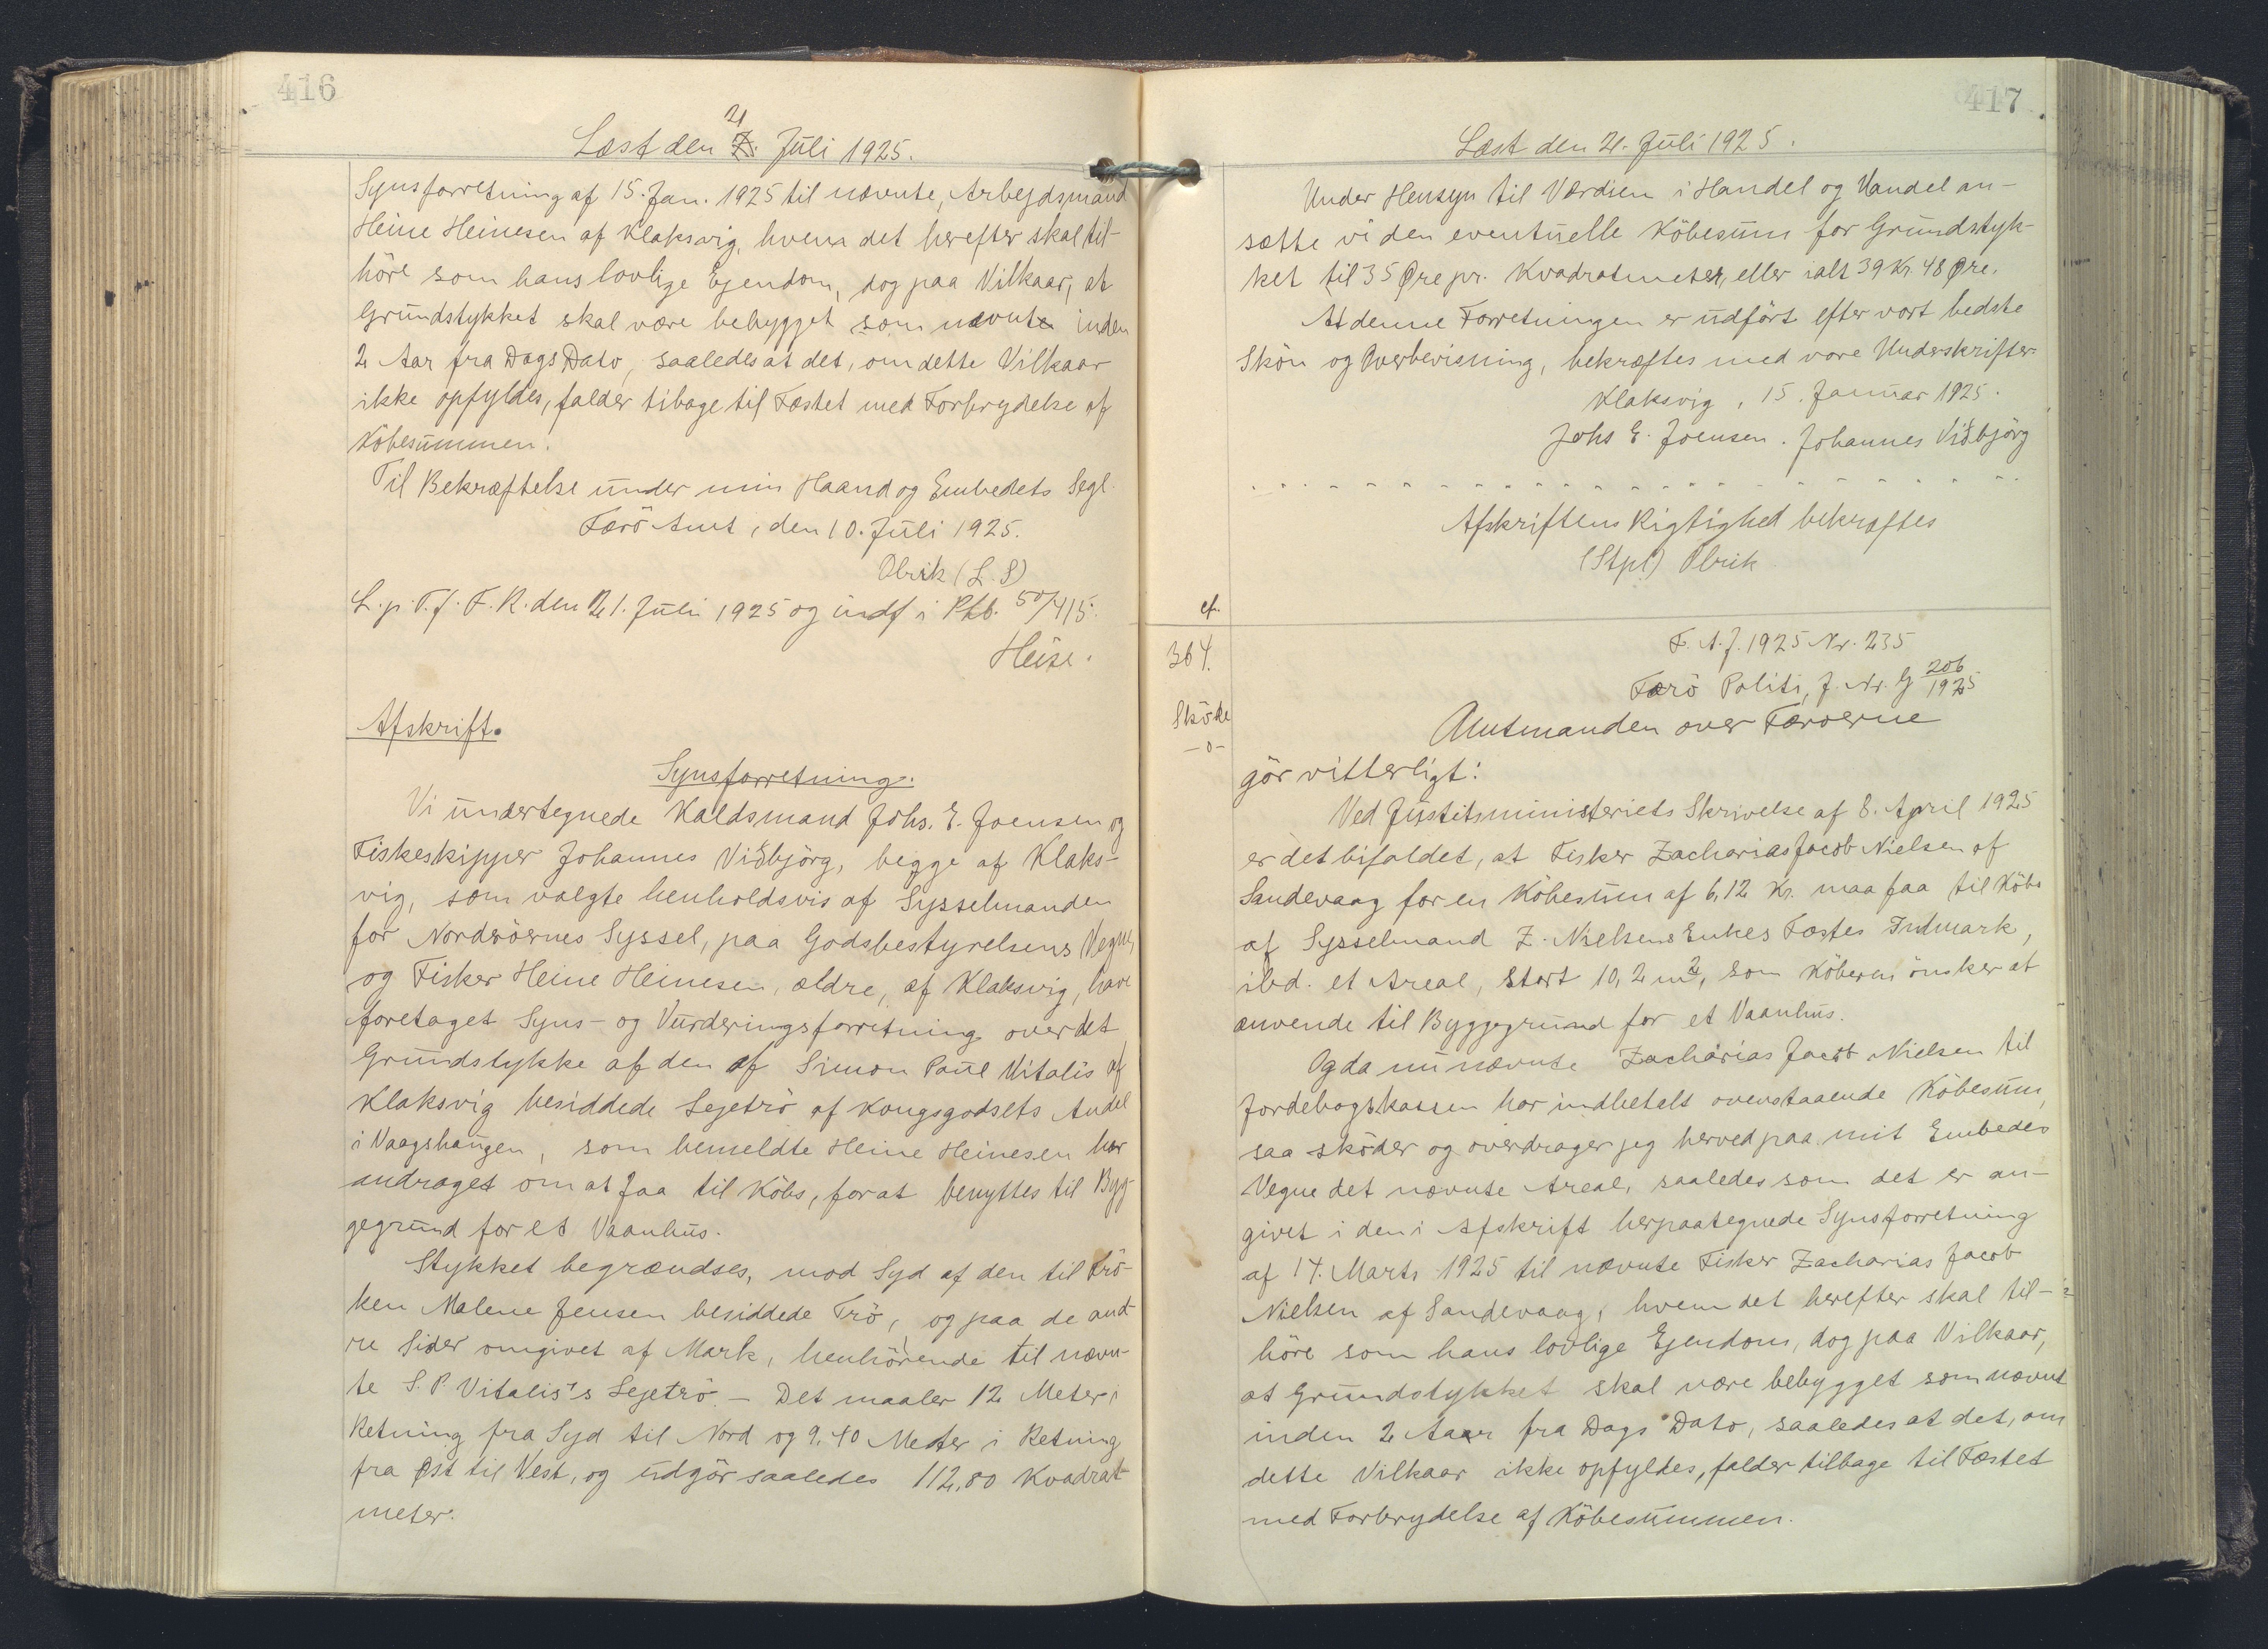 416
Læst den 21 Juli 1925.
Synsforretning af 15. Jan. 1925 til nævnte, Arbejdsmand
Heine Heinesen af Klaksvig, hvem det herefter skal til-
höre som hans lovlige Ejendom, dog paa Vilkaar, at
Grundstykket skal være bebygget som nævnt inden
2 Aar fra Dags Dato, saaledes at det, om dette Vilkaar
ikke opfyldes, falder tibage til Fæstet med Forbrydelse af
Köbesummen.
Til Bekræftelse under min Haand og Embedets Segl.
Færö Amt, den 10. Juli 1925.
Olrik (L. S)
L. p. T. f. F. R. den 21. Juli 1925 og indf i Ptb. 50/415.
Heise.
Afskrift.
Synsforretning.
Vi undertegnede Kaldsmand Johs. E. Joensen og
Fiskeskipper Johannes Viðbjörg, begge af Klaks-
vig, som valgte henholdsvis af Sysselmanden
for Norderöernes Syssel, paa Godsbestyrelsens Vegne,
og Fisker Heine Heinesen, ældre, af Klaksvig, have
foretaget Syns- og Vurderingsforretning over det
Grundstykke af den af Simon Paul Vitalis af
Klaksvig besiddede Lejetrö af Kongsgodsets Andel
i Vaagshaugen, som bemeldte Heine Heinesen har
andraget om at faa til Köbs, for at benyttes til Byg-
gegrund for et Vaanhus.
Stykket begrændses, mod Syd af den til Frö-
ken Malene Jensen besiddede Trö, og paa de and-
re Sider omgivet af Mark, henhörende til nævn-
te S. P. Vitalis's Lejetrö. - Det maaler 12 Meter i
Retning fra Syd til Nord og 9,40 Meter i Retning
fra Øst til Vest, og udgör saaledes 112,80 Kvadrat-
meter.
417
Læst den 21. Juli 1925.
Under Hensyn til Værdien i Handel og Vandel an-
sætte vi den eventuelle Köbesum for Grundstyk-
ket til 35 Øre pr. Kvadratmeter, eller ialt 39 Kr. 48 Øre.
At denne Forretningen er udfört efter vort bedste
Skön og Overbevisning, bekræftes med vore Underskrifter.
Klaksvig, 15. Januar 1925.
Johs E. Joensen. Johannes Viðbjörg
Afskriftens Rigtighed bekræftes
(Stpl) Olrik
cf.
364.
Sköde
-o-
F. A. J. 1925 Nr. 235
Færö Politi, J. Nr. G 206/1925
Amtmanden over Færoerne
gör vitterligt:
Ved Justitsministeriets Skrivelse af 8. April 1925
er det bifaldet, at Fisker Zacharias Jacob Nielsen af
Sandevaag for en Köbesum af 6,12 Kr. maa faa til Köbs
af Sysselmand Z. Nielsens Enkes Fæstes Indmark,
ibd. et Areal, stort 10,2 m², som Köberen önsker at
anvende til Byggegrund for et Vaanhus.
Og da nu nævnte Zacharias Jacob Nielsen til
Jordebogskassen har indbetalt ovenstaaende Köbesum,
saa sköder og overdrager jeg herved paa mit Embedes
Vegne det nævnte Areal, saaledes som det er an-
givet i den i Afskrift herpaategnede Synsforretning
af 14. Marts 1925 til nævnte Fisker Zacharias Jacob
Nielsen af Sandevaag, hvem det herefter skal til-
höre som hans lovlige Ejendom, dog paa Vilkaar,
at Grundstykket skal være bebygget som nævnt
inden 2 Aaar fra Dags Dato, saaledes at det, om
dette Vilkaar ikke opfyldes, falder tilbage til Fæstet
med Forbrydelse af Köbesummen.